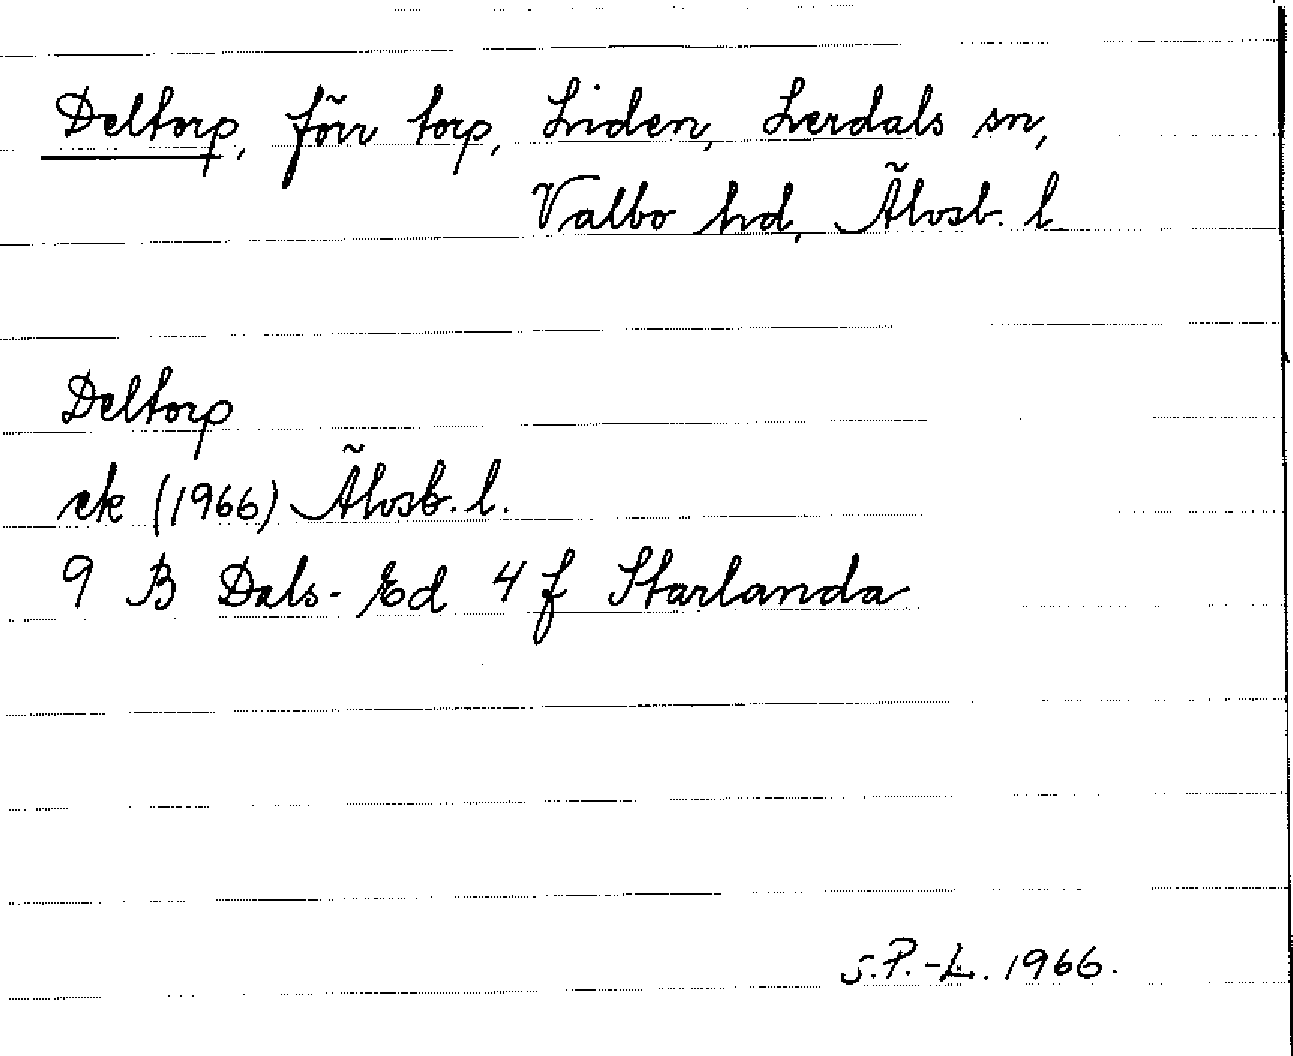 Deltorp, förr torp, Liden, Lerdals sn,
Valbo hd, Älvsb. l
Deltorp
ek (1966) Älvsb. l.
9 B Dals-Ed 4 f Starlanda
S.P.-L. 1966.